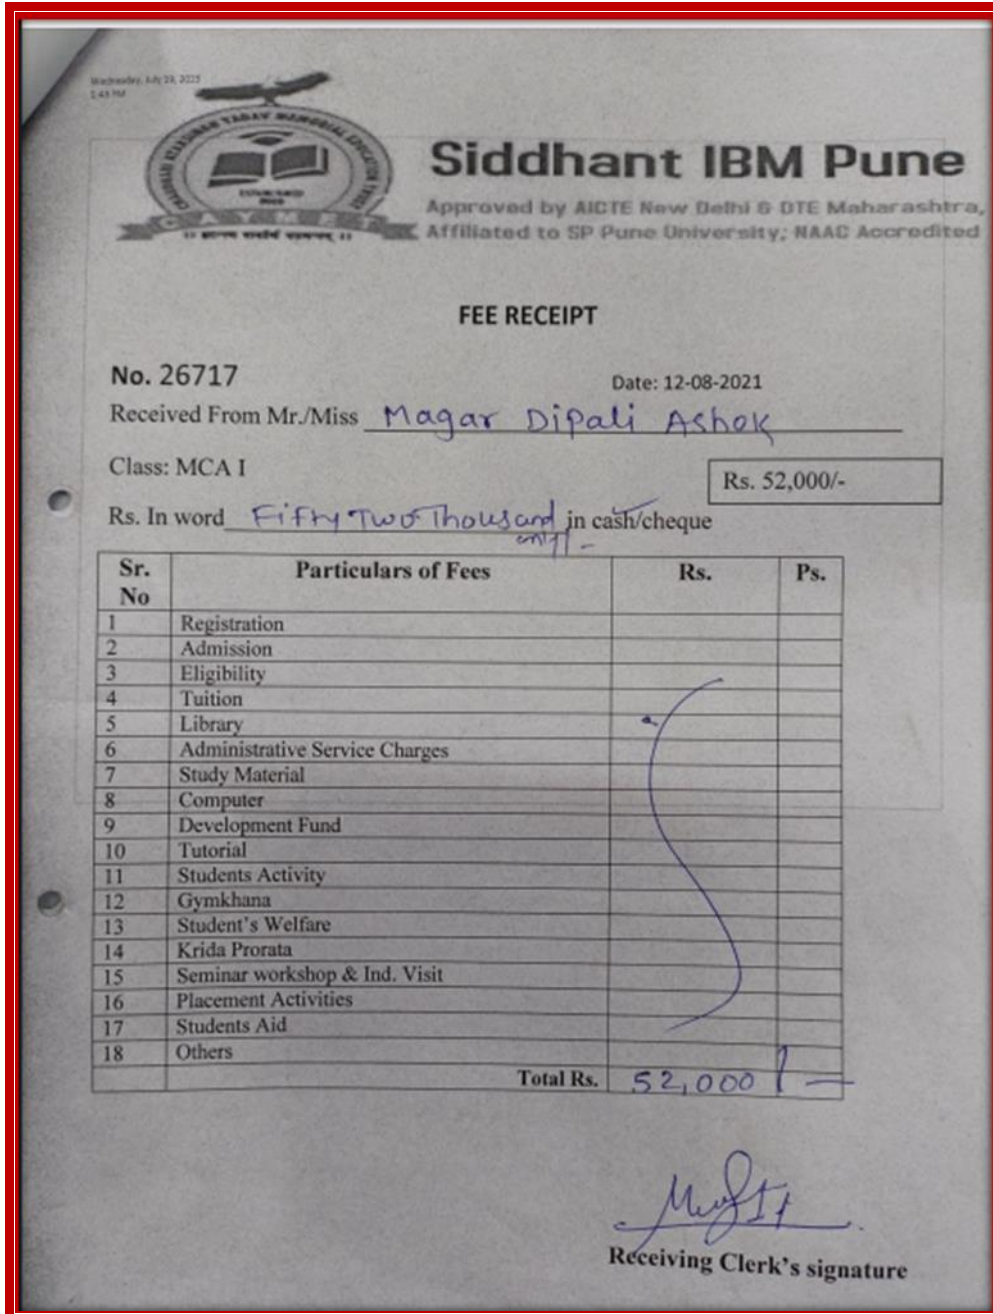 Wednesday, July 19, 2023
1:43 PM
YADAV MEMORIAL EDUCATION TRUST
ESTABLISHED
CAYMET
Siddhant IBM Pune
Approved by AICTE New Delhi & DTE Maharashtra,
Affiliated to SP Pune University; NAAC Accredited
FEE RECEIPT
No. 26717 Date: 12-08-2021
Received From Mr./Miss Magar Dipali Ashok
Class: MCA I
Rs. 52,000/-
Rs. In word Fifty Two Thousand in cash/cheque
only/-
Sr. No Particulars of Fees Rs. Ps.
1 Registration
2 Admission
3 Eligibility
4 Tuition
5 Library
6 Administrative Service Charges
7 Study Material
8 Computer
9 Development Fund
10 Tutorial
11 Students Activity
12 Gymkhana
13 Student's Welfare
14 Krida Prorata
15 Seminar workshop & Ind. Visit
16 Placement Activities
17 Students Aid
18 Others
Total Rs. 52,000/-
Receiving Clerk's signature